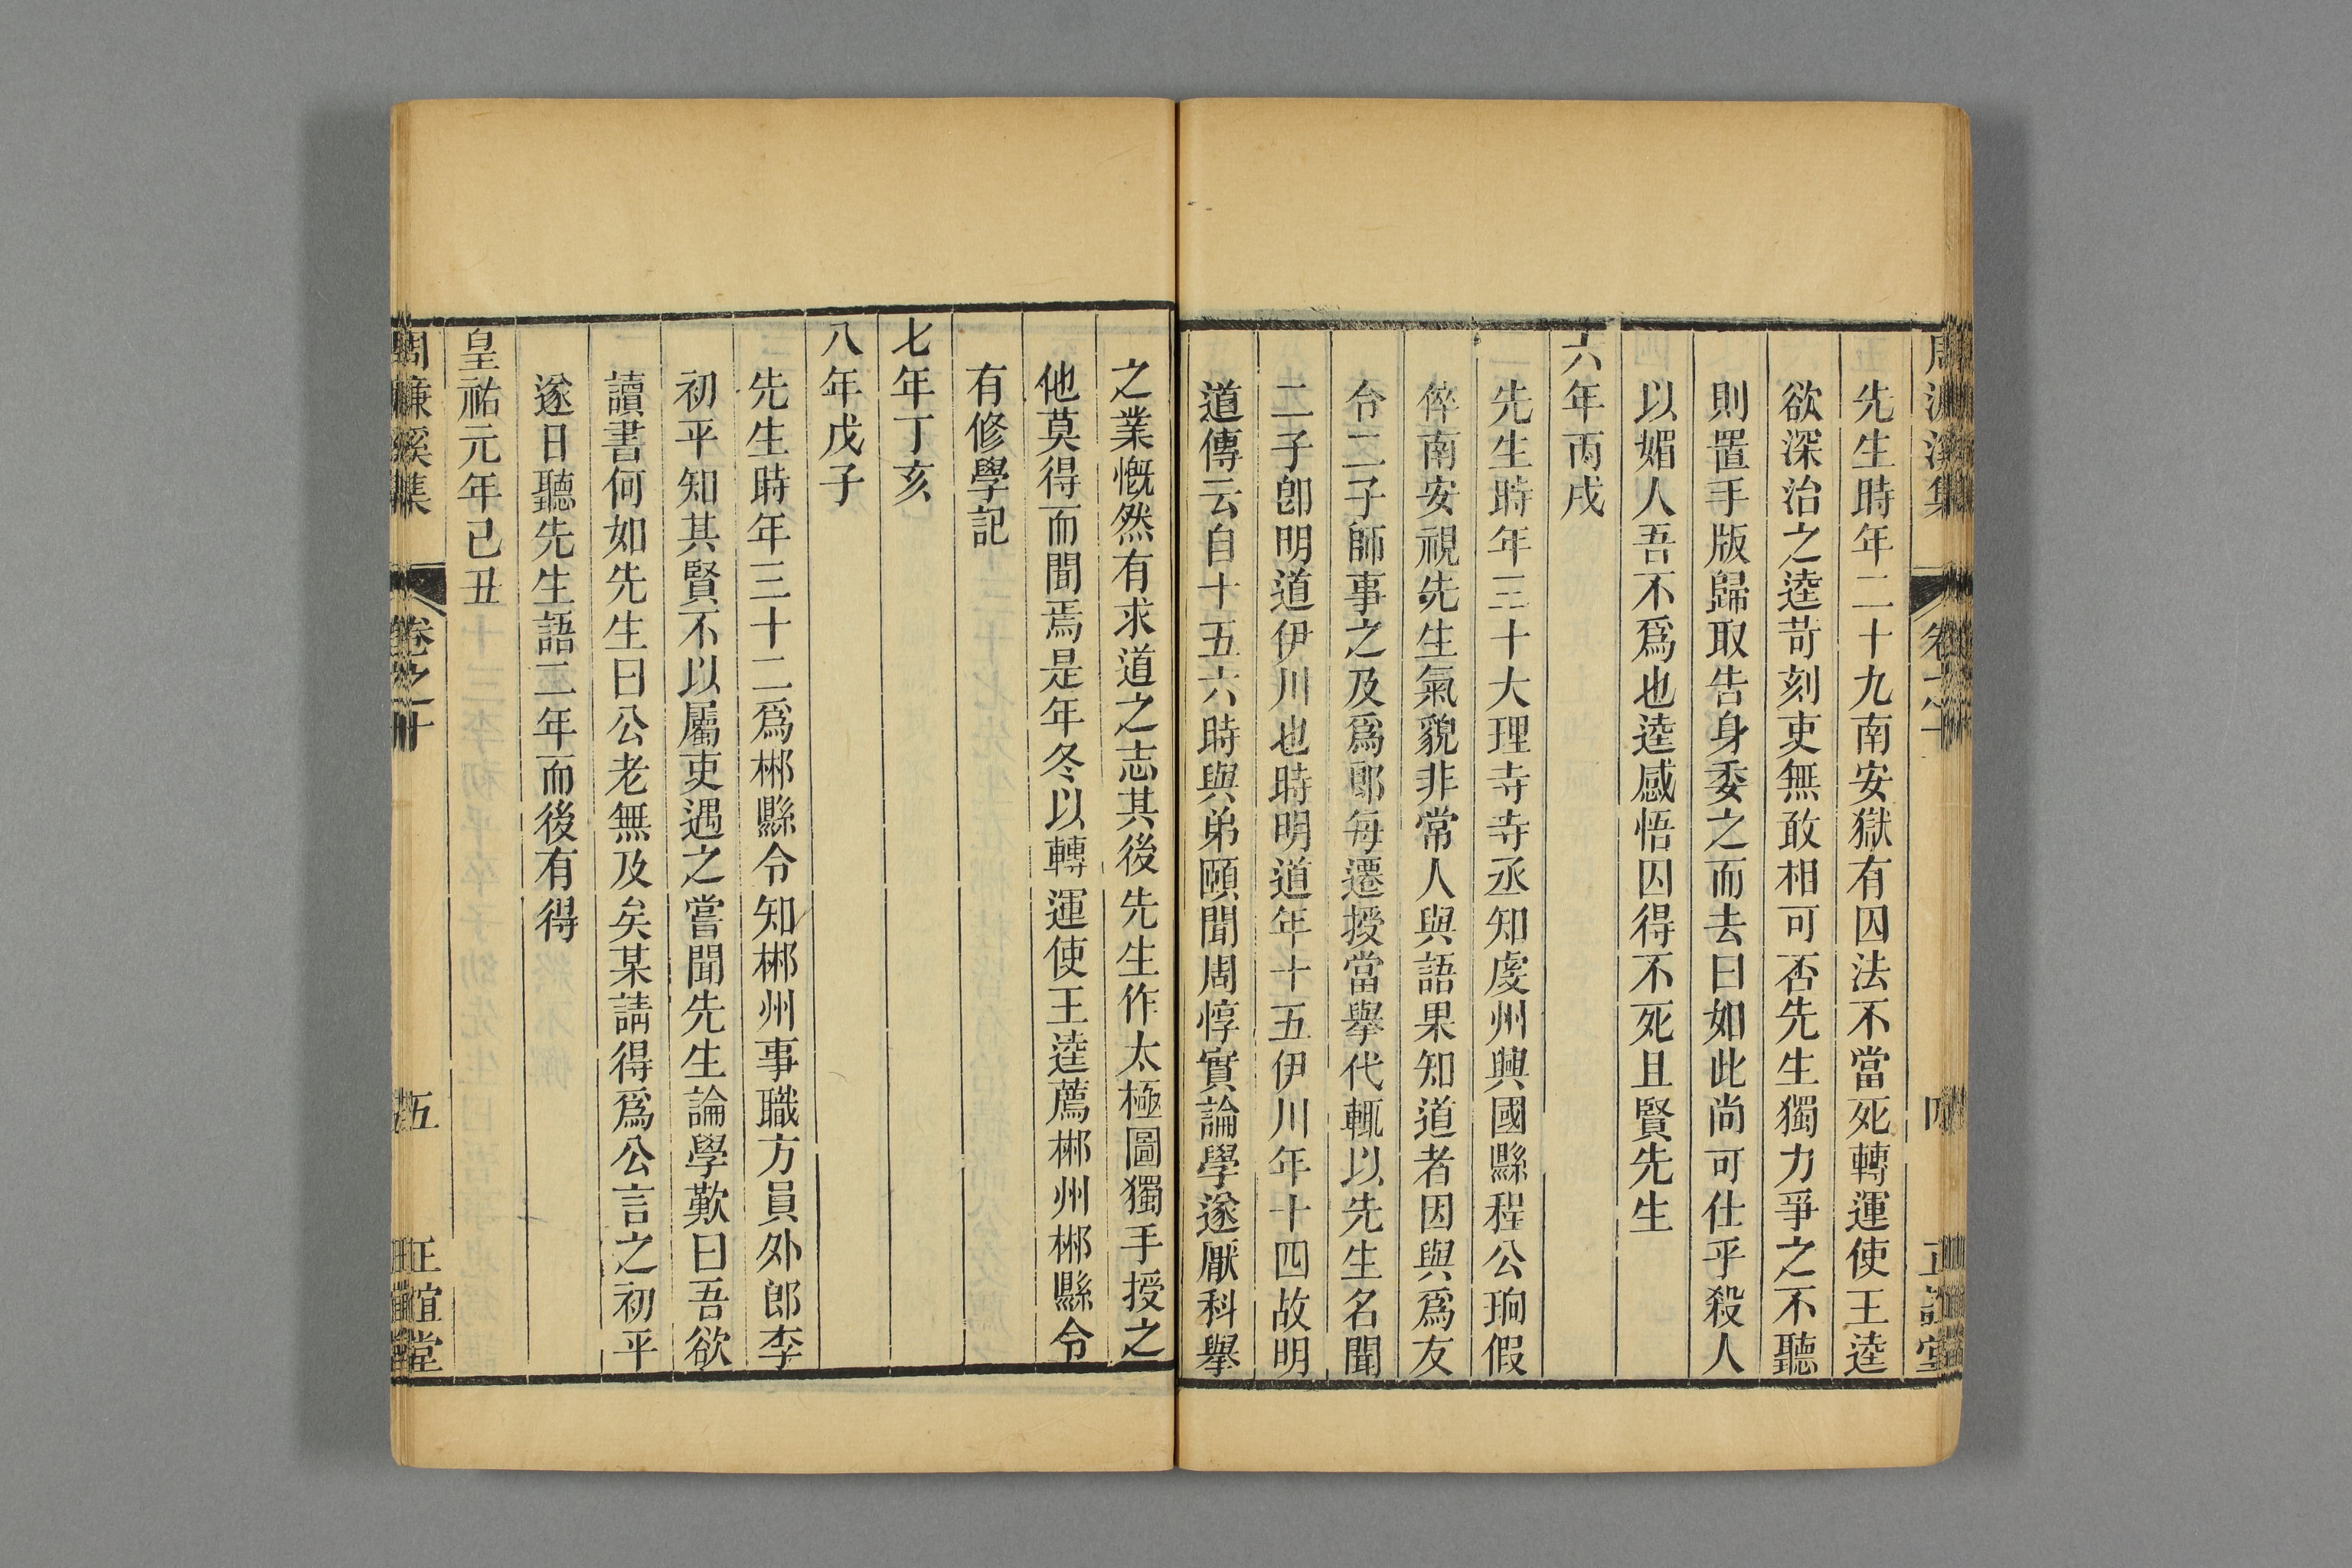 先生時年二十九南安獄有囚法不當死轉運使王逵
欲深治之逵苛刻吏無敢相可否先生獨力爭之不聽
則置手版歸取告身委之而去曰如此尚可仕乎殺人
以媚人吾不爲也逵感悟囚得不死且賢先生
六年丙戌
先生時年三十大理寺寺丞知虔州興國縣程公珦假
倅南安視先生氣貌非常人與語果知道者因與爲友
令二子師事之及爲郞每遷授當舉代輒以先生名聞
二子卽明道伊川也時明道年十五伊川年十四故明
道傳云自十五六時與弟頤聞周惇實論學遂厭科舉
之業慨然有求道之志其後先生作太極圖獨手授之
他莫得而聞焉是年冬以轉運使王逵薦郴州郴縣令
有修學記
七年丁亥
八年戊子
先生時年三十二爲郴縣令知郴州事職方員外郎李
初平知其賢不以屬吏遇之嘗聞先生論學歎曰吾欲
讀書何如先生曰公老無及矣某請得爲公言之初平
遂日聽先生語二年而後有得
皇祐元年己丑
周濂溪集 卷之十 五 正誼堂